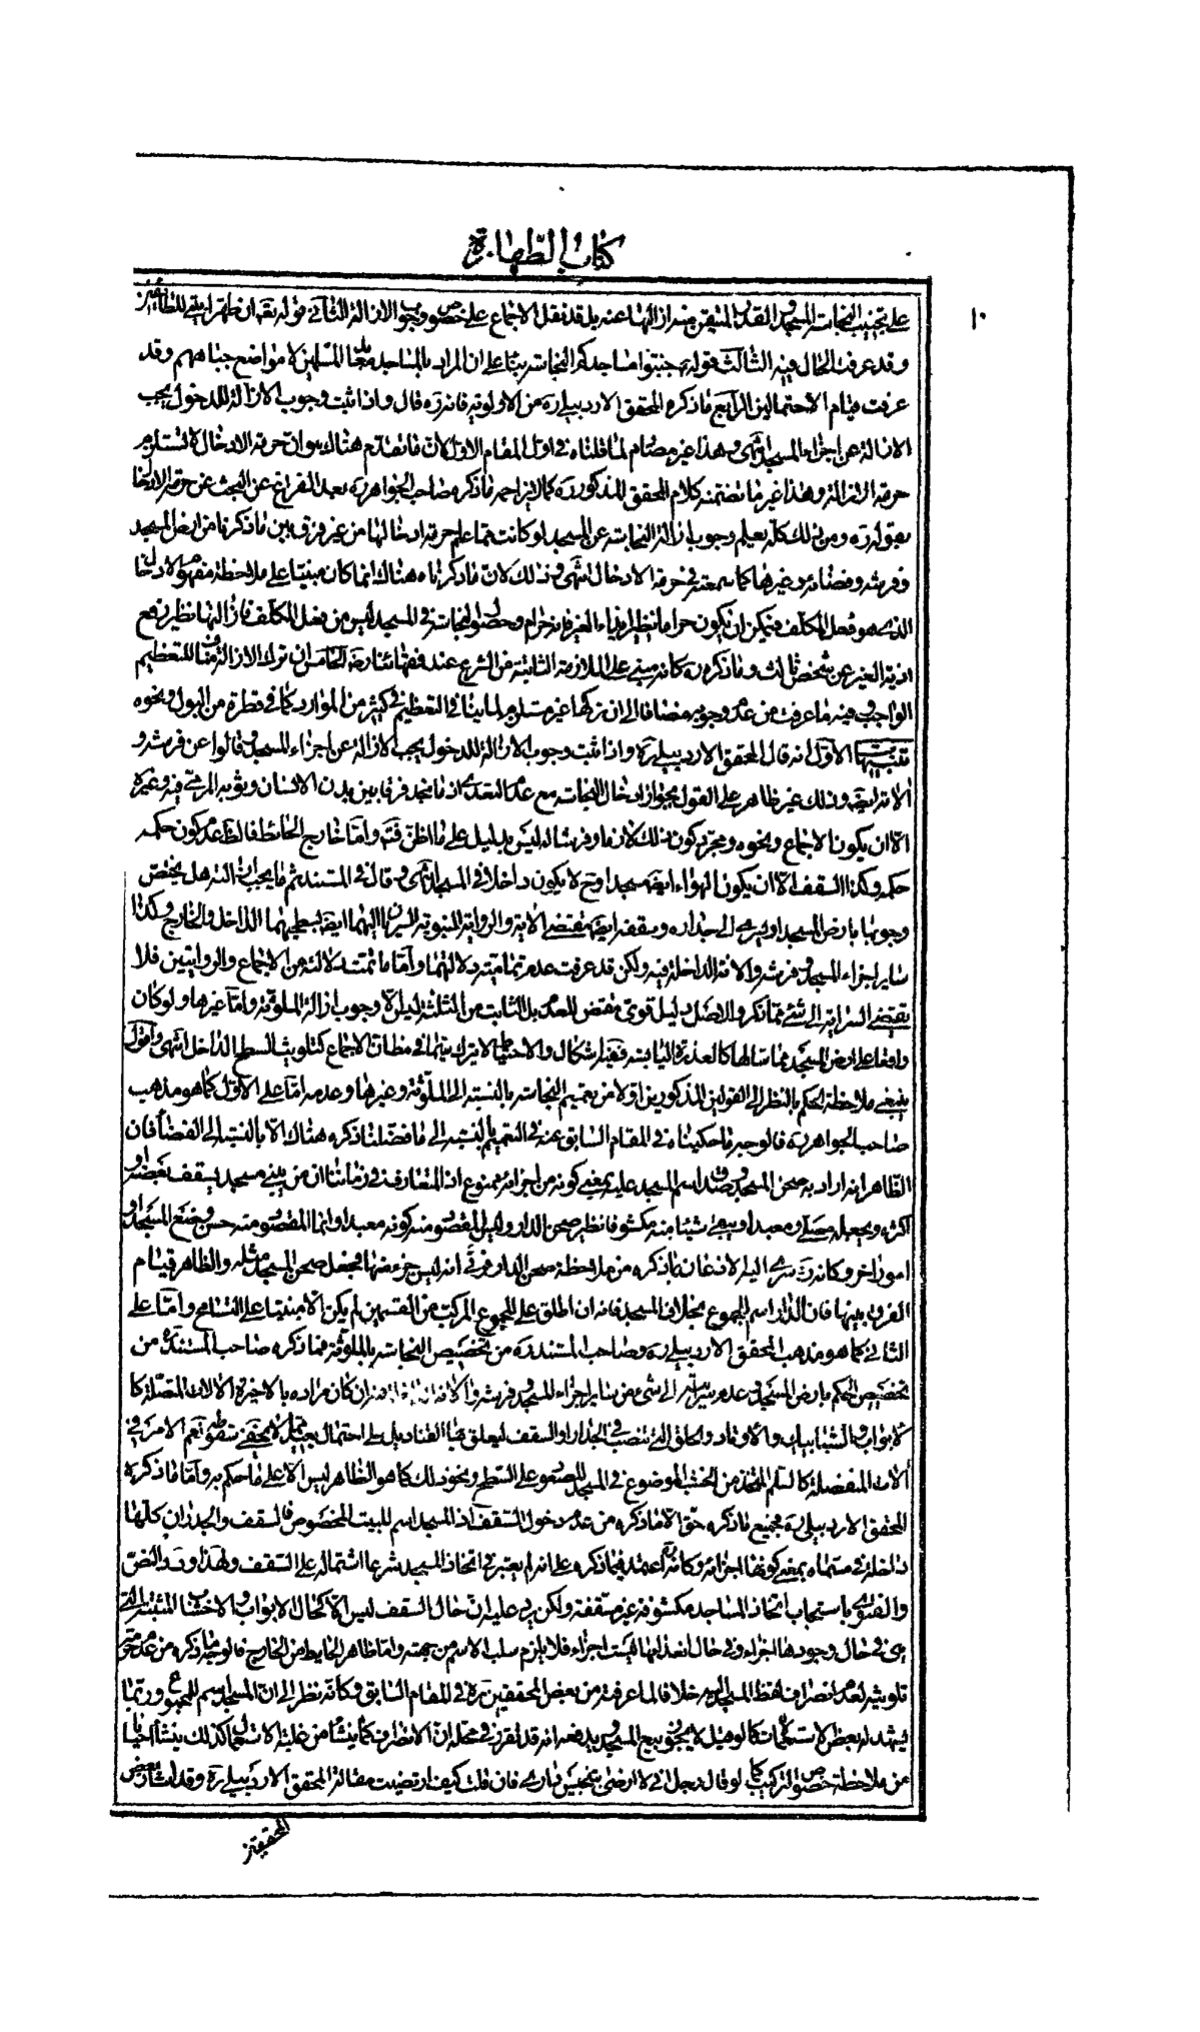 كتاب الطهارة
١٠
على تجنيب النجاسة المسجد والقدر المتيقن منه ازالتها عنه بل قد نقل الاجماع على خصوص وجوب الازالة الثاني قوله تعالى ان طهرا بيتي للطائفين
وقد عرفت الحال فيه الثالث قوله جنبوا مساجدكم النجاسة بناء على ان المراد بالمساجد معابد المسلمين لا مواضع جباههم وقد
عرفت قيام الاحتمالين الرابع ما ذكره المحقق الاردبيلي ره من الاولوية فانه ره قال واذا ثبت وجوب الازالة للدخول يجب
الازالة عن اجزاء المسجد انتهى وهذا غير مصادم لما قلناه في اول المقام الاول لان ما تقدم هناك هو ان حرمة الادخال لا تستلزم
حرمة الازالة وهذا غير ما تضمنه كلام المحقق المذكور ره كما لا يزاحمه ما ذكره صاحب الجواهر ره بعد الفراغ عن البحث عن حرمة الادخال
بقوله ره ومن ذلك كله يعلم وجوب ازالة النجاسة عن المسجد لو كانت مما علم حرمة ادخالها من غير فرق بين ما ذكرنا من ارض المسجد
وفرشه وفضائه وغيرها كما سمعته في حرمة الادخال انتهى وذلك لان ما ذكرناه هناك انما كان مبنيا على ملاحظة مفهوم الادخال
الذي هو فعل المكلف فيمكن ان يكون حراما نظير ايذاء الغير فانه حرام وحصول النجاسة في المسجد ليس من فعل المكلف فازالتها نظير رفع
اذية الغير عن شخص ثالث وما ذكره ره كانه مبني على الملازمة الثابتة من الشرع عند فقهائنا رض الخامس ان ترك الازالة مناف للتعظيم
الواجب وفيه ما عرفت من عدم وجوبه مضافا الى ان تركها غير مستلزم لما ينافي التعظيم في كثير من الموارد كما في قطرة من البول ونحوه
تنبيهات الاول انه قال المحقق الاردبيلي ره واذا ثبت وجوب الازالة للدخول يجب الازالة عن اجزاء المسجد وقالوا عن فرشه و
آلاته ايضا وذلك غير ظاهر على القول بجواز ادخال النجاسة مع عدم التعدي اذ ما نجد فرقا بين بدن الانسان وثوبه المرمي فيه وغيره
الا ان يكون الاجماع ونحوه ومجرد كون ذلك لازما وفرشا له ليس بدليل على ما اظن فت واما خارج الحائط فالظ عدم كون حكمه
حكمه وكذا السقف الا ان يكون الهواء ايضا مسجدا وح لا يكون داخلا في المسجد انتهى وقال في المستند ثم ما يجب ازالته هل يختص
وجوبها بارض المسجد او يسري الى جداره وسقفه ايضا مقتضى الآية والرواية النبوية السريان اليهما ايضا بسطحيهما الداخل والخارج وكذا
ساير اجزاء المسجد وفرشه والاته الداخلة فيه ولكن قد عرفت عدم تمامية دلالتهما واما ما تمت دلالته من الاجماع والروايتين فلا
يقتضي السراية الى شيء مما ذكر والاصل دليل قوي مقتض للعدم بل الثابت من الثلثة ليس الا وجوب ازالة الملوثة واما غيرها ولو كان
واقعا على ارض المسجد مماسا لها كالعذرة اليابسة ففيه اشكال والاحتياط لا يترك سيما في مظان الاجماع كتلويث السطح الداخل انتهى واقول
ينبغي ملاحظة الحكم بالنظر الى القولين المذكورين اولا من تعميم النجاسة بالنسبة الى الملوثة وغيرها وعدمه اما على الاول كما هو مذهب
صاحب الجواهر ره فالوجه ما حكيناه في المقام السابق عنه في التعميم بالنسبة الى ما فصلنا ذكره هناك الا بالنسبة الى الفضاء فان
الظاهر انه اراد به صحن المسجد وصدق اسم المسجد عليه بمعنى كونه من اجزائه ممنوع اذ المتعارف في زماننا ان من يبني مسجدا يسقف بعضه او
اكثره ويجعله مصلى ومعبدا ويبقي شيئا منه مكشوفا نظير صحن الدار وليس المقصود منه كونه معبدا وانما المقصود منه حسن وضع المسجد او
امور اخر وكانه ره سرى اليه الاذعان بما ذكره من ملاحظة صحن الدار فرأى انه ليس جزءا منها فجعل صحن المسجد مثله والظاهر قيام
الفرق بينها فان الدار اسم للمجموع بخلاف المسجد فانه ان اطلق على المجموع المركب من القسمين لم يكن الا مبنيا على التسامح واما على
الثاني كما هو مذهب المحقق الاردبيلي ره وصاحب المستند ره من تخصيص النجاسة بالملوثة فما ذكره صاحب المستند ره من
تخصيص الحكم بارض المسجد وعدم سرايته الى شيء من ساير اجزاء المسجد وفرشه ان كان مراده بالاخيرة الالات المتصلة كا
لابواب والشبابيك والاوتاد والحلق التي تنصب في الجدار او السقف ليعلق بها القناديل على احتمال بعيد لا يخفى سقوطه نعم الامر في
الالات المنفصلة كالسلم المتخذ من الخشب الموضوع في المسجد للصعود على السطح ونحو ذلك كما هو الظاهر ليس الا على ما حكم به واما ما ذكره
المحقق الاردبيلي ره فجميع ما ذكره حق الا ما ذكره من عدم دخول السقف اذ المسجد اسم للبيت المخصوص فالسقف والجدران كلها
داخلة في مسماه بمعنى كونها اجزائه وكانه اعتمد فيما ذكره على انه لم يعتبر في اتخاذ المسجد شرعا اشتماله على السقف ولهذا ورد النص
والفتوى باستحباب اتخاذ المساجد مكشوفة غير مسقفة ولكن يرد عليه ان حال السقف ليس الا كحال الابواب والاخشاب المثبتة التي
هي في حال وجودها اجزاء وفي حال انعدامها ليست اجزاء فلا يلزم سلب الاسم من جهته واما ظاهر الحايط من الخارج فالوجه ما ذكره من عدم حرمة
تلويثه لعدم انصراف لفظ المسجد اليه خلافا لما عرفت من بعض المحققين ره في المقام السابق وكانه نظر الى ان المسجد اسم للمجموع وربما
يشهد له بعض الاستعمالات كما لو قيل لا يجوز بيع المسجد ويدفعه انه قد تقرر في محله ان الانصراف كما ينشأ من غلبة الاستعمال كذلك ينشأ احيانا
من ملاحظة خصوص التركيب كما لو قال رجل اني لا ارضى بتنجيس داري فان قلت كيف ارتضيت مقالة المحقق الاردبيلي ره وقد اشار بعض
المحققين